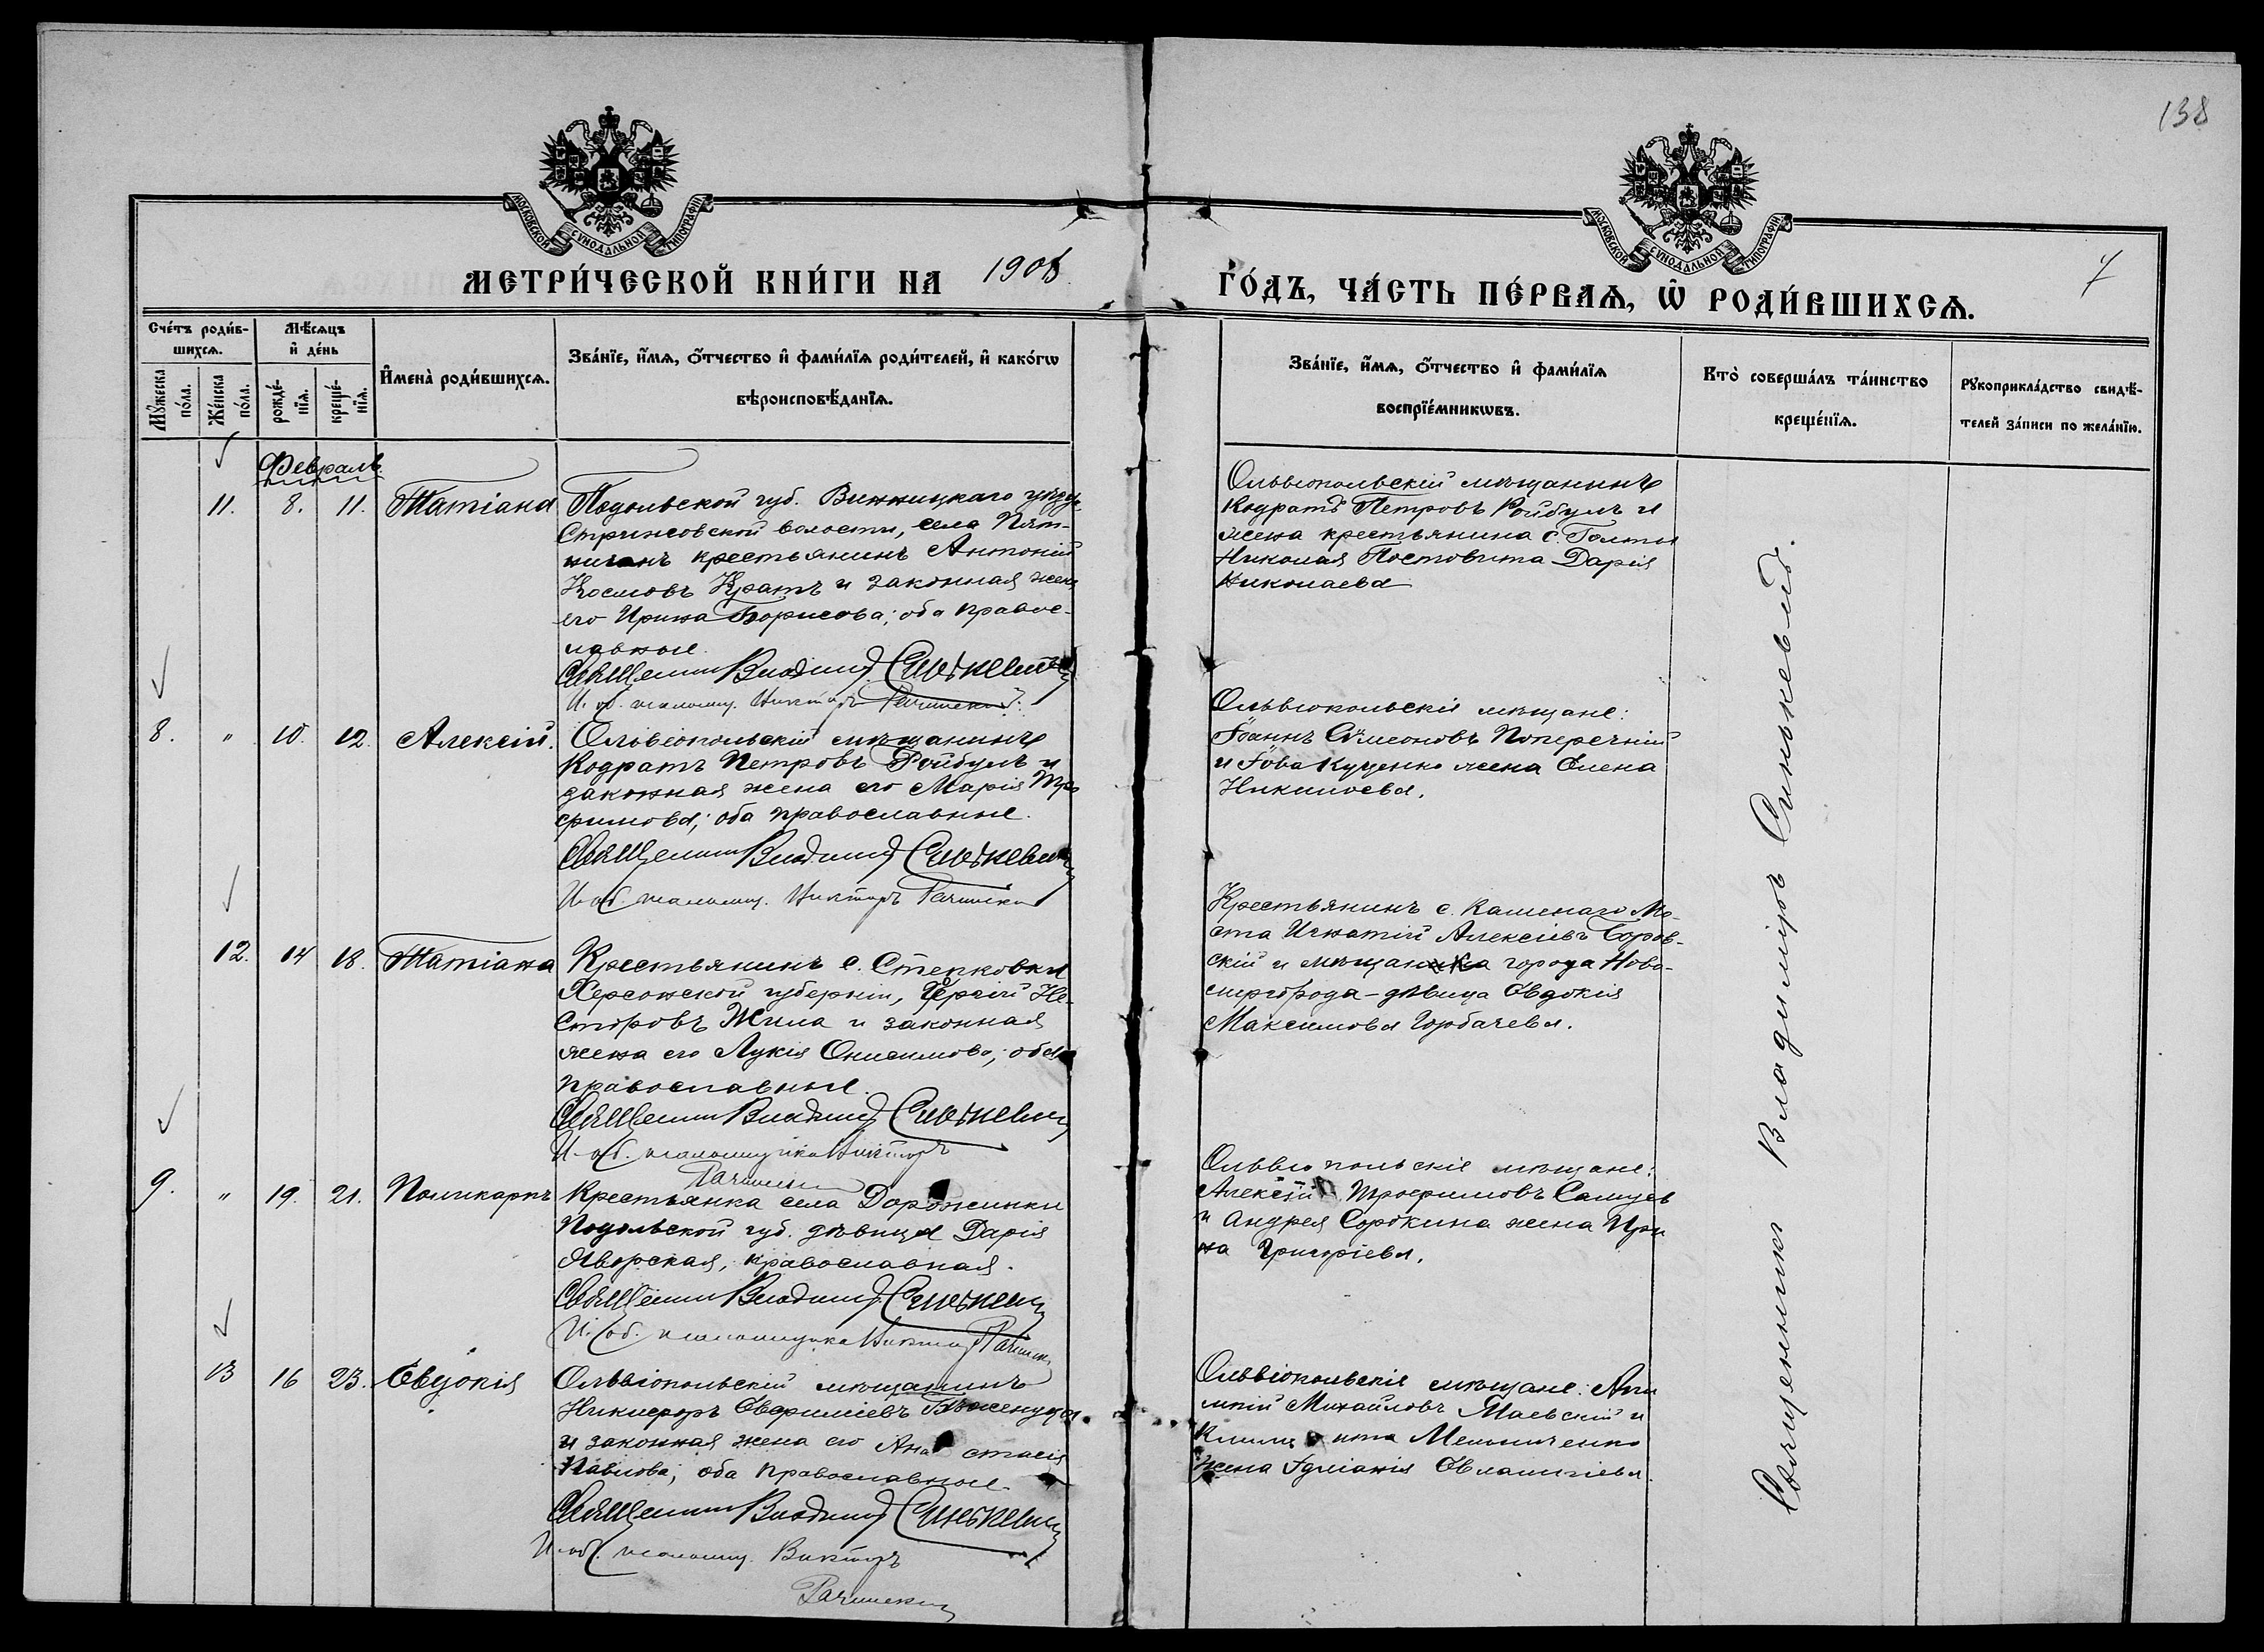 138
МОСКОВСКОЙ СѴНОДАЛЬНОЙ ТИПОГРАФІИ
МОСКОВСКОЙ СѴНОДАЛЬНОЙ ТИПОГРАФІИ
МЕТРИ́ЧЕСКОЙ КНИ́ГИ НА 1908
ГО́ДЪ, ЧА́СТЬ ПЕ́РВАѦ, Ѿ РОДИ́ВШИХСѦ.
7
Сче́тъ роди́в-
шихсѧ.
Мѣ́сѧцъ
и҆ де́нь
Мꙋ́жеска
по́ла.
Же́нска
по́ла.
рожде́-
нїѧ.
креще́-
нїѧ.
И҆мена̀ роди́вшихсѧ.
Зва́нїе, и҆́мѧ, ѻ҆́тчество и҆ фами́лїѧ роди́телей, и҆ како́гѡ
вѣроисповѣ́данїѧ.
Зва́нїе, и҆́мѧ, ѻ҆́тчество и҆ фами́лїѧ
воспрїе́мникѡвъ.
Кто̀ соверша́лъ та́инство
креще́нїѧ.
Рꙋкоприкла́дство свидѣ́-
телей за́писи по жела́нїю.
Февраль.
11. 8. 11. Татіана
Подольской губ. Винницкаго уѣзда,
Стрижовской волости, села Пят-
ничанъ крестьянинъ Антоній
Космовъ Кратъ и законная жена
его Ирина Борисова; оба правос-
лавные.
Священникъ Владимір Синькевичъ
И. об. псаломщ. Викторъ Рачинскій
Ольвіопольскій мѣщанинъ
Кодратъ Петровъ Ройбулъ и
жена крестьянина с. Голты
Николая Постовита Дарія
Николаева
8. " 10. 12. Алексій.
Ольвіопольскій мѣщанинъ
Кодратъ Петровъ Ройбулъ и
законная жена его Марія Тро
фимова; оба православные.
Священникъ Владимір Синькевичъ
И. об. псаломщ. Викторъ Рачинскій
Ольвіопольскіе мѣщане:
Іоаннъ Симеоновъ Поперечній
и Іова Куценко жена Елена
Никитоева.
12. 14 18. Татіана
Крестьянинъ с. Степковки
Херсонской губерніи, Сергій Не-
сторовъ Жила и законная
жена его Лукія Онисимова; оба
православные.
Священникъ Владимір Синькевичъ
И. об. псаломщика Викторъ
Рачинскій
Крестьянинъ с. Каменаго Мо-
ста Игнатій Алексіевъ Боров-
скій и мѣщанка города Ново-
миргорода - дѣвица Евдокія
Максимова Горбачева.
9. " 19. 21. Поликарпъ
Крестьянка села Дорожинки
Подольской губ. дѣвица Дарія
Яворская, православная.
Священникъ Владимір Синькевичъ
И. об. псаломщика Викторъ Рачинскій
Ольвіопольскіе мѣщане:
Алексій Трофимовъ
и Андрея Сорокина жена Ири
на Григоріева.
13 16 23. Евдокія
Ольвіопольскій мѣщанинъ
Никифоръ Евфиміевъ
и законная жена его Анастасія
Павлова; оба православные.
Священникъ Владимір Синькевичъ
И. об. псаломщ. Викторъ
Рачинскій
Ольвіопольскіе мѣщане:
Михайловъ Маевскій и
Мельниченко
жена Іуліанія
Священникъ Владиміръ Синькевичъ.